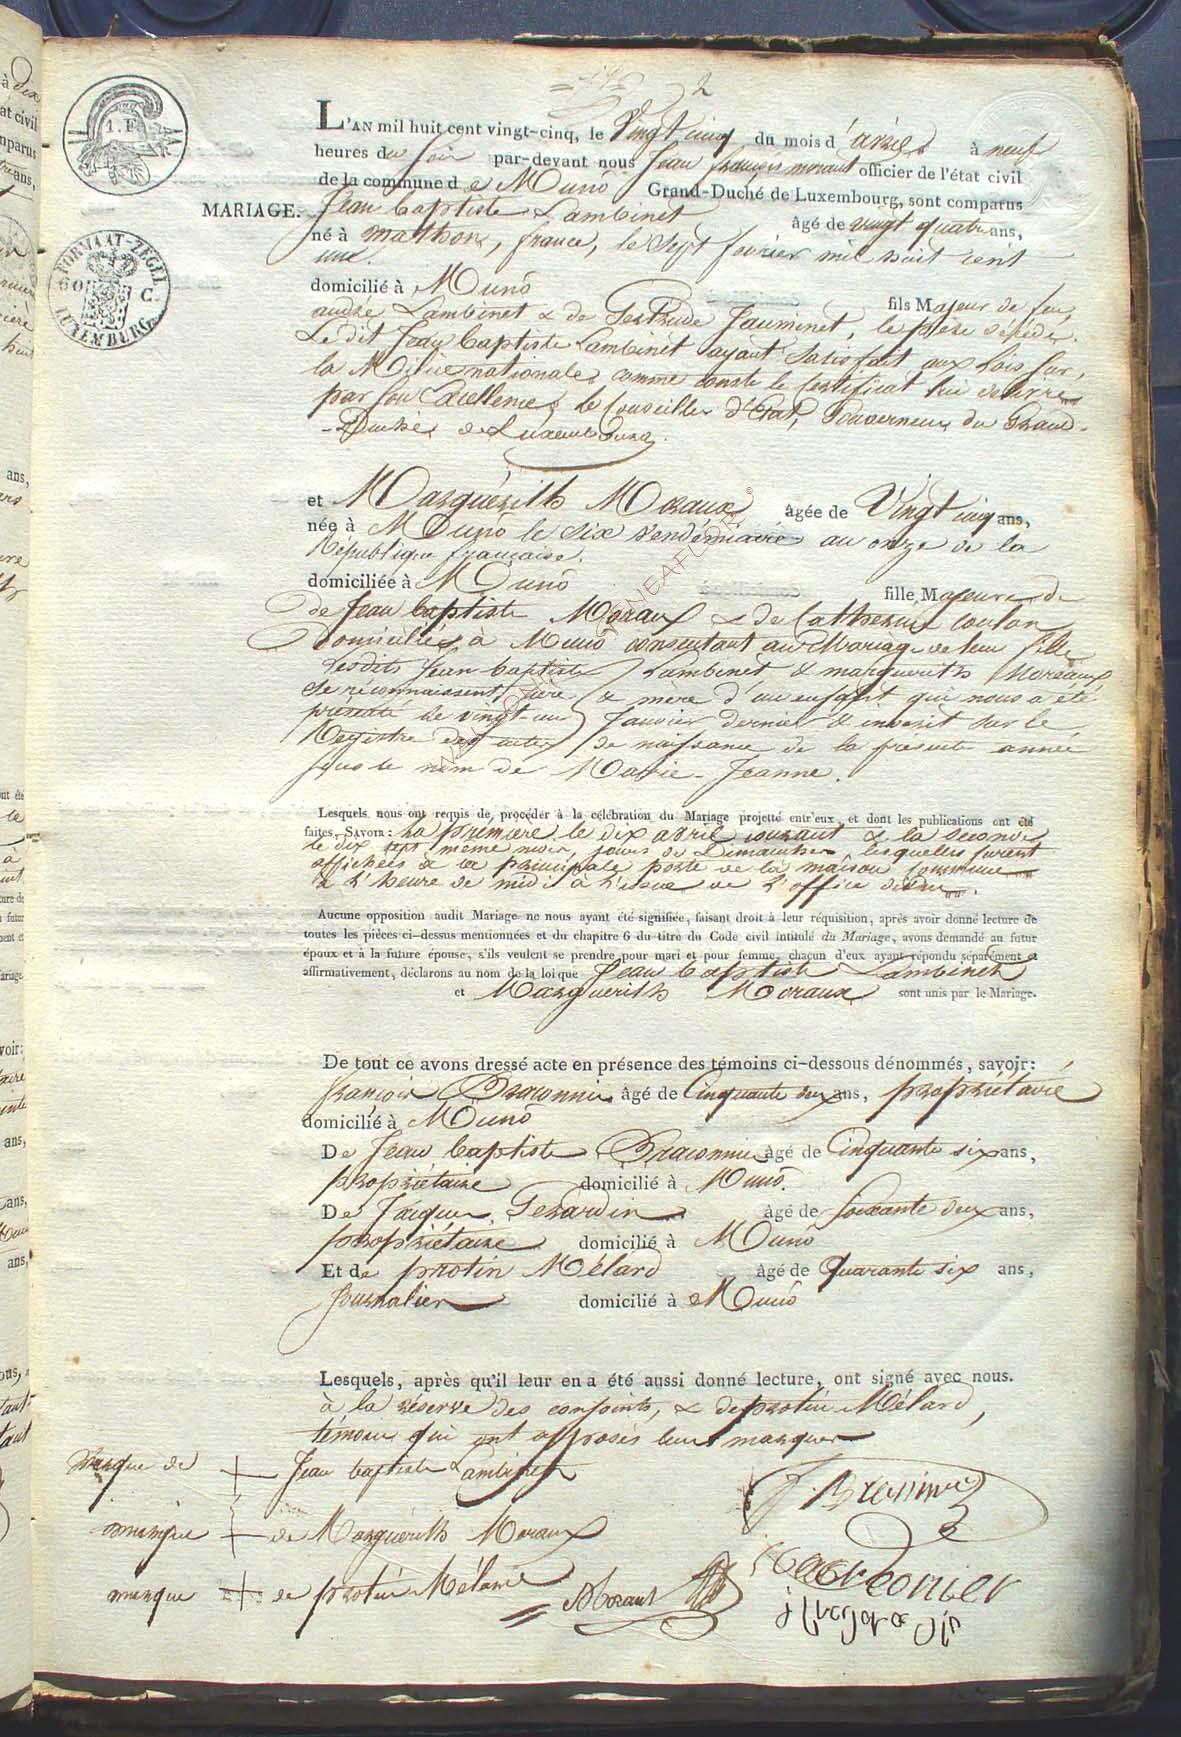 2
L'AN mil huit cent vingt-cinq, le Vingt cinq du mois d'avril à neuf
heures du soir par-devant nous Jean françois moraux officier de l'état civil
de la commune d e Muno Grand-Duché de Luxembourg, sont comparus
MARIAGE. Jean baptiste Lambinet âgé de vingt quatre ans,
né à mathon, france, le Sept février mil huit cent
une.
domicilié à Muno fils Majeur de feu
andré Lambinet & de Gertrude Jauminet, le père décédé.
Le dit Jean baptiste Lambinet ayant satisfait aux Lois sur
la Milice nationale, comme conste le Certificat lui délivré
par son Excellence, le Conseiller d'Etat, Gouverneur du Grand-
-Duché de Luxembourg.
et Marguérith Moraux âgée de Vingt cinq ans,
née à Muno le dix vendémiaire an onze de la
République française.
domiciliée à Muno fille Majeure de
de Jean baptiste Moraux & de Catherine Coulon
domiciliés à Muno consentant au Mariage de leur fille
lesdits Jean baptiste Lambinet & marguerith Moraux
se réconnaissent père & mere d'un enfant qui nous a été
presenté le vingt-un Janvier dernier & inscrit sur le
Registre des actes de naissance de la presente année
sous le nom de Marie-Jeanne.
Lesquels nous ont requis de procéder à la célébration du Mariage projetté entr'eux, et dont les publications ont été
faites, SAVOIR: La première le dix avril courant & la seconde
le dix sept même mois, jours de Dimanches, lesquelles furent
affichées à la principale porte de la maison Commune
à l'heure de midi à l'issue de l'office divin.
Aucune opposition audit Mariage ne nous ayant été signifiée, faisant droit à leur réquisition, après avoir donné lecture de
toutes les pièces ci-dessus mentionnées et du chapitre 6 du titre du Code civil intitulé du Mariage, avons demandé au futur
époux et à la future épouse, s'ils veulent se prendre pour mari et pour femme, chacun d'eux ayant répondu séparément et
affirmativement, déclarons au nom de la loi que Jean baptiste Lambinet
et Marguerith Moraux sont unis par le Mariage.
De tout ce avons dressé acte en présence des témoins ci-dessous dénommés, savoir:
françois Braconnier âgé de Cinquante deux ans, propriétaire
domicilié à Muno
De Jean baptiste Braconnier âgé de Cinquante six ans,
propriétaire domicilié à Muno.
De Jacques Gerardin âgé de soixante deux ans,
propriétaire domicilié à Muno
Et de protin Mélard âgé de Quarante six ans,
Journalier domicilié à Muno
Lesquels, après qu'il leur en a été aussi donné lecture, ont signé avec nous.
à la réserve des conjoints, & de protin Mélard,
témoin qui ont apposés leurs marques
marque de + Jean baptiste Lambinet
marque + de Marguérith Moraux
marque + de protin Mélard
Moraux
1. F.
FORMAAT-ZEGEL
60 C.
LUXEMBURG